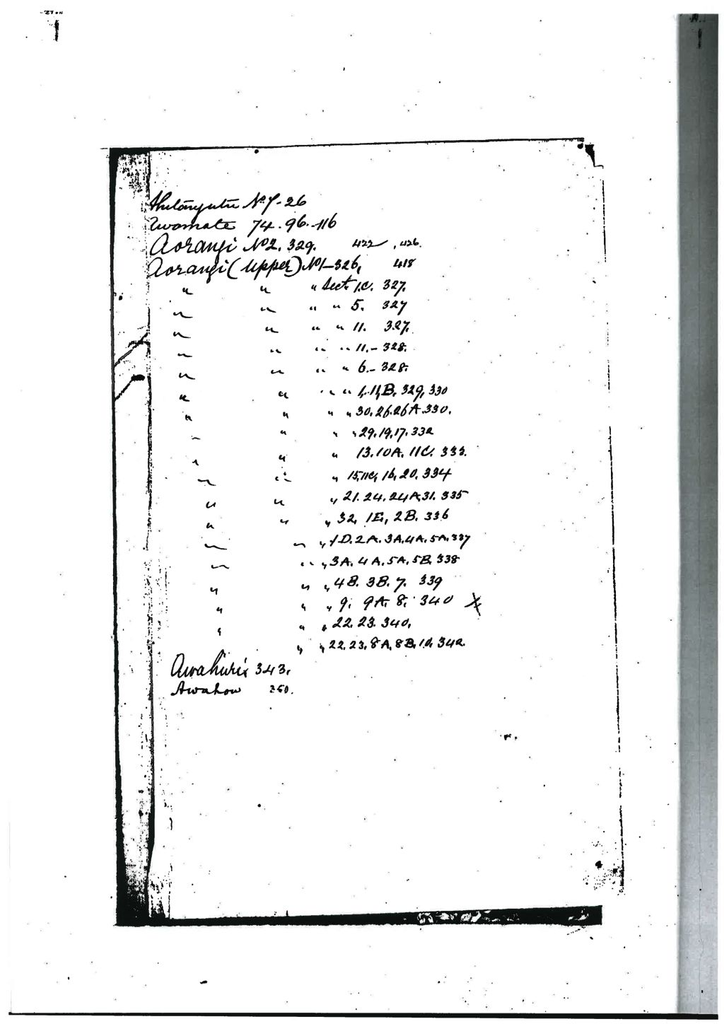 Ahuturanga No 7-26
Awamate 74. 96. 116
Aorangi No 2. 329. 422 , 426.
Aorangi (Upper) No 1-326, 418
" " " Sect 1.C. 327.
" " " " 5. 327
" " " " 11. 327.
" " " " 11.- 328.
" " " " 6.- 328.
" " " " 4.11B. 329, 330
" " " 30. 26. 26A. 330.
" " " 29. 19. 17. 332
" " " 13. 10A. 11C. 333.
" " " 15, 11C, 16, 20. 334
" " " 21. 24. 24A 31. 335
" " " 32, 1E, 2B. 336
" " " 1D. 2A. 3A. 4A. 5A. 337
" " " 3A. 4A. 5A. 5B. 338
" " " 4B. 3B. 7. 339
" " " 9. 9A. 8. 340 X
" " " 22. 23. 340.
" " 22. 23. 8A. 8B. 342
Awahuri 343.
Awahou 350.